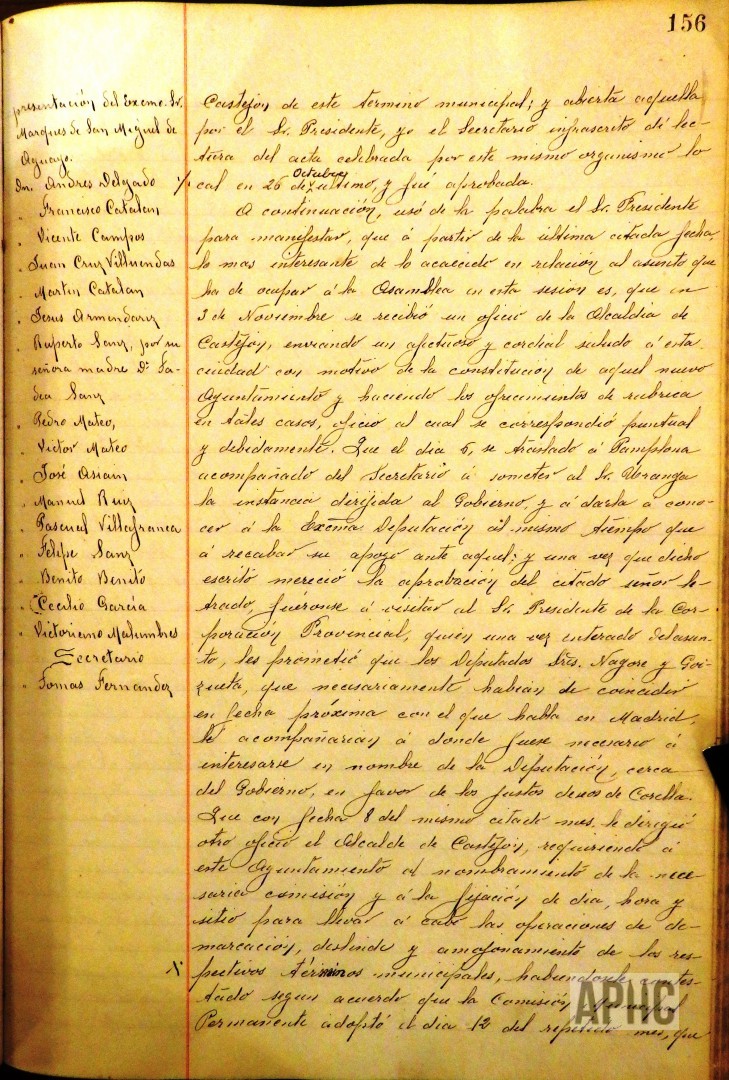 156
presentación del Excmo. Sr.
Marques de San Miguel de
Aguayo.
Dn. Andres Delgado
" Francisco Catalan
" Vicente Campos
" Juan Cruz Villuendas
" Martin Catalan
" Jesus Armendariz
" Ruperto Sanz, por su
señora madre Dª Ta-
dea Sanz
" Pedro Mateo,
" Victor Mateo
" José Asiain
" Manuel Ruiz
" Pascual Villafranca
" Felipe Sanz
" Benito Benito
" Cecilio García
" Victoriano Malumbres
Secretario
" Tomas Fernandez
Castejon de este termino municipal; y abierta aquella
por el Sr. Presidente, yo el Secretario infrascrito dí lec-
tura del acta celebrada por este mismo organismo lo
cal en 26 de Octubre ultimo, y fué aprobada.
A continuación, usó de la palabra el Sr. Presidente
para manifestar, que á partir de la ultima citada fecha,
lo mas interesante de lo acaecido en relación al asunto que
ha de ocupar á la Asamblea en esta sesión es, que en
3 de Noviembre se recibió un oficio de la Alcaldia de
Castejon, enviando un afectuoso y cordial saludo á esta
ciudad con motivo de la constitucion de aquel nuevo
Ayuntamiento y haciendo los ofrecimientos de rubrica
en tales casos, oficio al cual se correspondió puntual
y debidamente. Que el dia 6, se trasladó á Pamplona
acompañado del Secretario á someter al Sr. Uranga
la instancia dirijida al Gobierno, y á darla á cono-
cer á la Excma Diputación al mismo tiempo que
á recabar su apoyo ante aquel; y una vez que dicho
escrito mereció la aprobación del citado señor le-
trado, fuéronse á visitar al Sr. Presidente de la Cor-
poración Provincial, quien una vez enterado del asun-
to, les prometió que los Diputados Srs. Nagore y Goi-
zueta, que necesariamente habian de coincidir
en fecha próxima con el que habla en Madrid,
le acompañarian á donde fuese necesario á
interesarse en nombre de la Diputación, cerca
del Gobierno, en favor de los justos deseos de Corella.
Que con fecha 8 del mismo citado mes, le dirigió
otro oficio el Alcalde de Castejon, requiriendo á
este Ayuntamiento al nombramiento de la nece-
saria comisión y á la fijación de dia, hora y
sitio para llevar á cabo las operaciones de de-
marcación, deslinde y amojonamiento de los res-
pectivos términos municipales, habiendosele contes-
tado segun acuerdo que la Comisión
Permanente adoptó el dia 12 del repetido mes, que
APHC